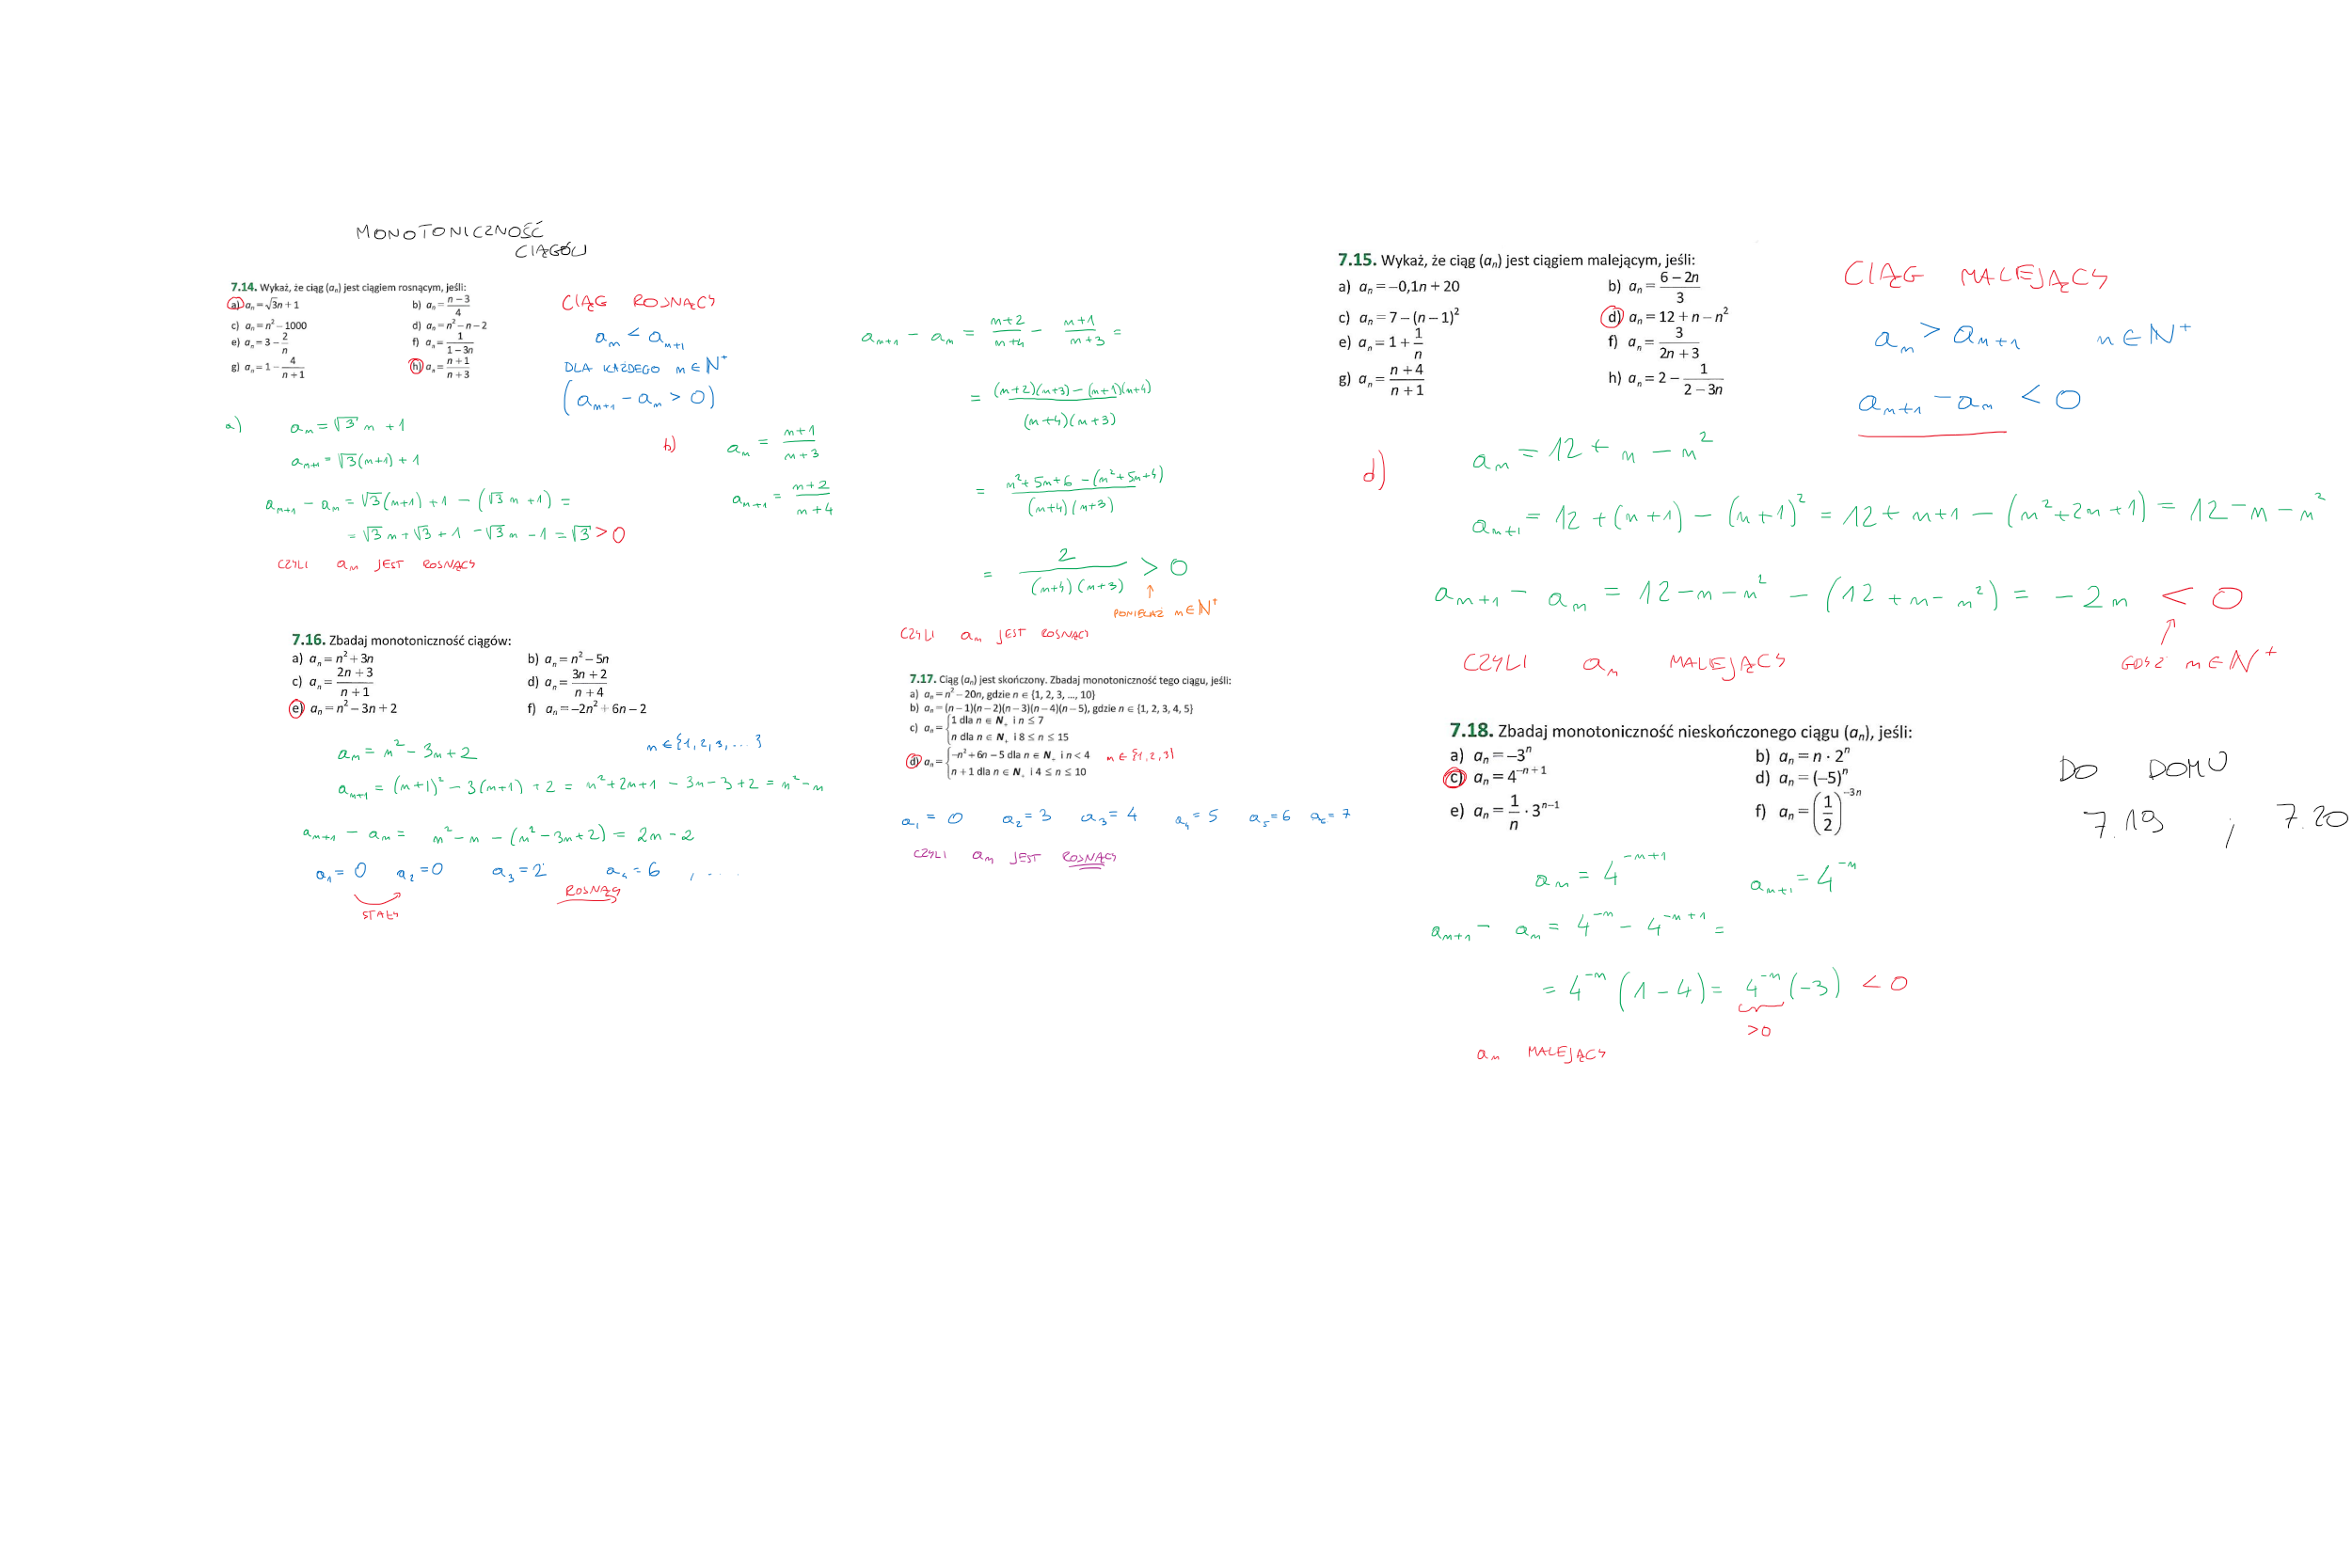 MONOTONICZNOŚĆ
CIĄGÓW
7.14. Wykaż, że ciąg (aₙ) jest ciągiem rosnącym, jeśli:
a) aₙ = √3n + 1
b) aₙ = (n − 3)/4
c) aₙ = n² − 1000
d) aₙ = n² − n − 2
e) aₙ = 3 − 2/n
f) aₙ = 1/(1 − 3n)
g) aₙ = 1 − 4/(n + 1)
h) aₙ = (n + 1)/(n + 3)
CIĄG ROSNĄCY
aₙ < aₙ₊₁
DLA KAŻDEGO n ∈ N⁺
(aₙ₊₁ − aₙ > 0)
a) aₙ = √3 n + 1
aₙ₊₁ = √3(n+1) + 1
aₙ₊₁ − aₙ = √3(n+1) + 1 − (√3 n + 1) =
= √3 n + √3 + 1 − √3 n − 1 = √3 > 0
CZYLI aₙ JEST ROSNĄCY
h) aₙ = (n+1)/(n+3)
aₙ₊₁ = (n+2)/(n+4)
aₙ₊₁ − aₙ = (n+2)/(n+4) − (n+1)/(n+3) =
= ((n+2)(n+3) − (n+1)(n+4))/((n+4)(n+3))
= (n² + 5n + 6 − (n² + 5n + 4))/((n+4)(n+3))
= 2/((n+4)(n+3)) > 0
↑
PONIEWAŻ n ∈ N⁺
CZYLI aₙ JEST ROSNĄCY
7.15. Wykaż, że ciąg (aₙ) jest ciągiem malejącym, jeśli:
a) aₙ = −0,1n + 20
b) aₙ = (6 − 2n)/3
c) aₙ = 7 − (n − 1)²
d) aₙ = 12 + n − n²
e) aₙ = 1 + 1/n
f) aₙ = 3/(2n + 3)
g) aₙ = (n + 4)/(n + 1)
h) aₙ = 2 − 1/(2 − 3n)
CIĄG MALEJĄCY
aₙ > aₙ₊₁ n ∈ N⁺
aₙ₊₁ − aₙ < 0
d) aₙ = 12 + n − n²
aₙ₊₁ = 12 + (n+1) − (n+1)² = 12 + n+1 − (n² + 2n + 1) = 12 − n − n²
aₙ₊₁ − aₙ = 12 − n − n² − (12 + n − n²) = −2n < 0
↑
GDYŻ n ∈ N⁺
CZYLI aₙ MALEJĄCY
7.16. Zbadaj monotoniczność ciągów:
a) aₙ = n² + 3n
b) aₙ = n² − 5n
c) aₙ = (2n + 3)/(n + 1)
d) aₙ = (3n + 2)/(n + 4)
e) aₙ = n² − 3n + 2
f) aₙ = −2n² + 6n − 2
aₙ = n² − 3n + 2 n ∈ {1, 2, 3, ...}
aₙ₊₁ = (n+1)² − 3(n+1) + 2 = n² + 2n + 1 − 3n − 3 + 2 = n² − n
aₙ₊₁ − aₙ = n² − n − (n² − 3n + 2) = 2n − 2
a₁ = 0 a₂ = 0 a₃ = 2 a₄ = 6 , ....
STAŁY
ROSNĄC
7.17. Ciąg (aₙ) jest skończony. Zbadaj monotoniczność tego ciągu, jeśli:
a) aₙ = n² − 20n, gdzie n ∈ {1, 2, 3, ..., 10}
b) aₙ = (n − 1)(n − 2)(n − 3)(n − 4)(n − 5), gdzie n ∈ {1, 2, 3, 4, 5}
c) aₙ = { 1 dla n ∈ N₊ i n ≤ 7
n dla n ∈ N₊ i 8 ≤ n ≤ 15
d) aₙ = { −n² + 6n − 5 dla n ∈ N₊ i n < 4 n ∈ {1, 2, 3}
n + 1 dla n ∈ N₊ i 4 ≤ n ≤ 10
a₁ = 0 a₂ = 3 a₃ = 4 a₄ = 5 a₅ = 6 a₆ = 7
CZYLI aₙ JEST ROSNĄCY
7.18. Zbadaj monotoniczność nieskończonego ciągu (aₙ), jeśli:
a) aₙ = −3ⁿ
b) aₙ = n · 2ⁿ
c) aₙ = 4⁻ⁿ⁺¹
d) aₙ = (−5)ⁿ
e) aₙ = 1/n · 3ⁿ⁻¹
f) aₙ = (1/2)⁻³ⁿ
aₙ = 4⁻ⁿ⁺¹ aₙ₊₁ = 4⁻ⁿ
aₙ₊₁ − aₙ = 4⁻ⁿ − 4⁻ⁿ⁺¹ =
= 4⁻ⁿ (1 − 4) = 4⁻ⁿ (−3) < 0
>0
aₙ MALEJĄCY
DO DOMU
7.19 ; 7.20